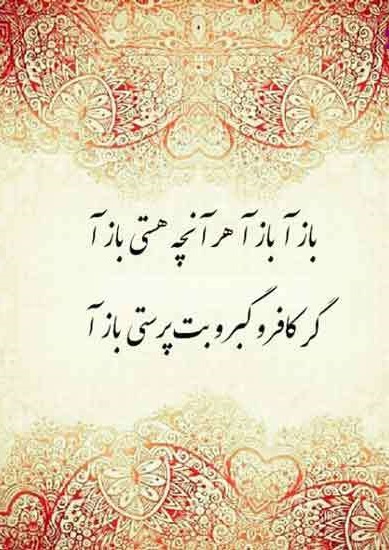 باز آ باز آ هر آنچه هستی باز آ
گر کافر و گبر و بت پرستی باز آ